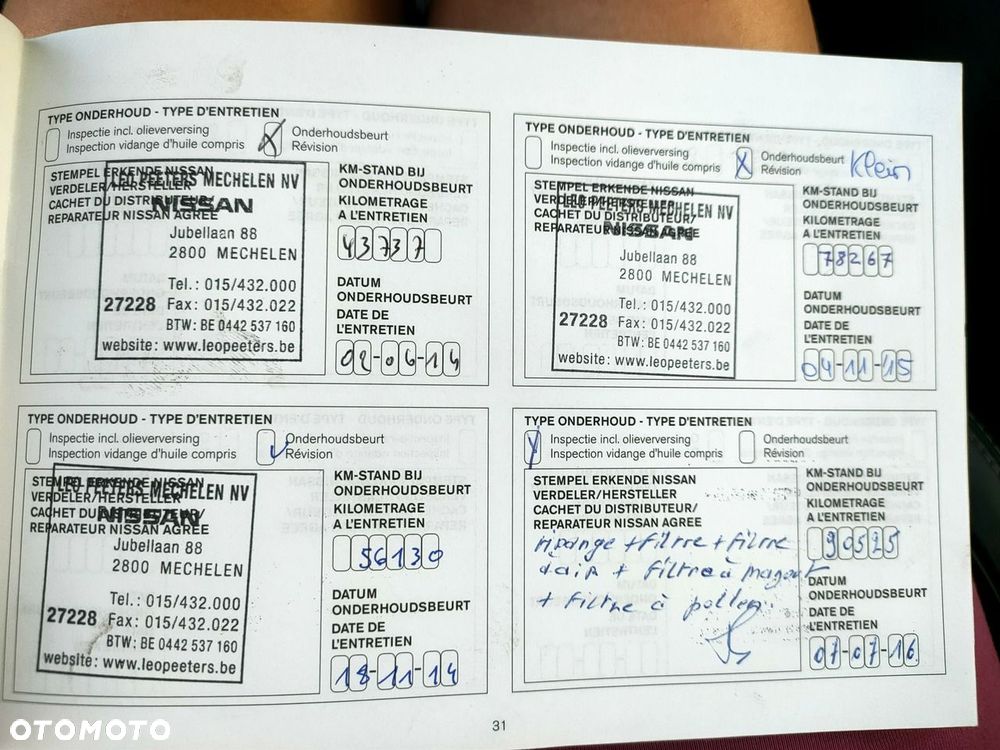 TYPE ONDERHOUD - TYPE D'ENTRETIEN
Inspectie incl. olieverversing
Inspection vidange d'huile compris
X
Onderhoudsbeurt
Révision
STEMPEL ERKENDE NISSAN
VERDELER/HERSTELLER
CACHET DU DISTRIBUTEUR/
REPARATEUR NISSAN AGREE
LEO PEETERS MECHELEN NV
NISSAN
Jubellaan 88
2800 MECHELEN
Tel.: 015/432.000
27228 Fax: 015/432.022
BTW: BE 0442 537 160
website: www.leopeeters.be
KM-STAND BIJ
ONDERHOUDSBEURT
KILOMETRAGE
A L'ENTRETIEN
43737
DATUM
ONDERHOUDSBEURT
DATE DE
L'ENTRETIEN
02-06-14
TYPE ONDERHOUD - TYPE D'ENTRETIEN
Inspectie incl. olieverversing
Inspection vidange d'huile compris
X
Onderhoudsbeurt
Révision
Klein
STEMPEL ERKENDE NISSAN
VERDELER/HERSTELLER
CACHET DU DISTRIBUTEUR/
REPARATEUR NISSAN AGREE
LEO PEETERS MECHELEN NV
NISSAN
Jubellaan 88
2800 MECHELEN
Tel.: 015/432.000
27228 Fax: 015/432.022
BTW: BE 0442 537 160
website: www.leopeeters.be
KM-STAND BIJ
ONDERHOUDSBEURT
KILOMETRAGE
A L'ENTRETIEN
78267
DATUM
ONDERHOUDSBEURT
DATE DE
L'ENTRETIEN
04-11-15
TYPE ONDERHOUD - TYPE D'ENTRETIEN
Inspectie incl. olieverversing
Inspection vidange d'huile compris
Onderhoudsbeurt
Révision
STEMPEL ERKENDE NISSAN
VERDELER/HERSTELLER
CACHET DU DISTRIBUTEUR/
REPARATEUR NISSAN AGREE
LEO PEETERS MECHELEN NV
NISSAN
Jubellaan 88
2800 MECHELEN
Tel.: 015/432.000
27228 Fax: 015/432.022
BTW: BE 0442 537 160
website: www.leopeeters.be
KM-STAND BIJ
ONDERHOUDSBEURT
KILOMETRAGE
A L'ENTRETIEN
56130
DATUM
ONDERHOUDSBEURT
DATE DE
L'ENTRETIEN
18-11-14
TYPE ONDERHOUD - TYPE D'ENTRETIEN
Inspectie incl. olieverversing
Inspection vidange d'huile compris
Onderhoudsbeurt
Révision
STEMPEL ERKENDE NISSAN
VERDELER/HERSTELLER
CACHET DU DISTRIBUTEUR/
REPARATEUR NISSAN AGREE
+ filtre + filtre
d'air + filtre à
+ filtre à pollen
KM-STAND BIJ
ONDERHOUDSBEURT
KILOMETRAGE
A L'ENTRETIEN
90525
DATUM
ONDERHOUDSBEURT
DATE DE
L'ENTRETIEN
07-07-16
31
OTOMOTO